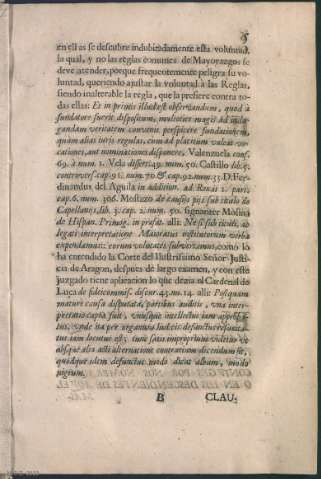 5
en ellas se descubre indubitadamente esta voluntad,
la qual, y no las reglas comunes de Mayorazgos se
deve atender, porque frequentemente peligra su vo-
luntad, queriendo ajustar la voluntad à las Reglas,
siendo inalterable la regla, que la prefiere contra to-
das ellas: Et in primis illud est observandum, quod à
fundatore fuerit dispositum, multoties magis ad inda-
gandam veritatem convenit perspicere fundationem,
quàm alias iuris regulas, cum ad placitum valeat vo-
cationes, aut nominationes disponere. Valenzuela cons.
69. à num. 1. Vela dissert. 49. num. 50. Castillo lib. 5.
controvers. cap. 91. num. 70. & cap. 92. num. 33. D. Fer-
dinandus del Aguila in addition. ad Roxas 1. part.
cap. 6. num. 306. Mostazo de causis pijs sub titulo de
Capellanijs, lib. 3. cap. 2. num. 50. signanter Molina
de Hispan. Primog. in præfat. alli: Ne si sub
legati interpretatione Maioratus institutorum verba
expendamus: eorum voluntatis subvertamus, como lo
ha entendido la Corte del Ilustrissimo Señor Justi-
cia de Aragon, despues de largo examen, y con esto
juzgado tiene aplicacion lo que dezia el Cardenal de
Luca de fideicommis. discur. 45. nu. 14. alli: Postquam
mature causa disputata, partibus auditis, una inter-
pretatio capta fuit, unusque intellectus iam appro-
batus, unde ita per organum Iudicis defunctus
tam locutus est; tunc satis improprium videtur
absque alio acti alternatione contrarium dicendum sit,
quod que idem defunctus modo dicat album, modo
nigrum.
B CLAU-